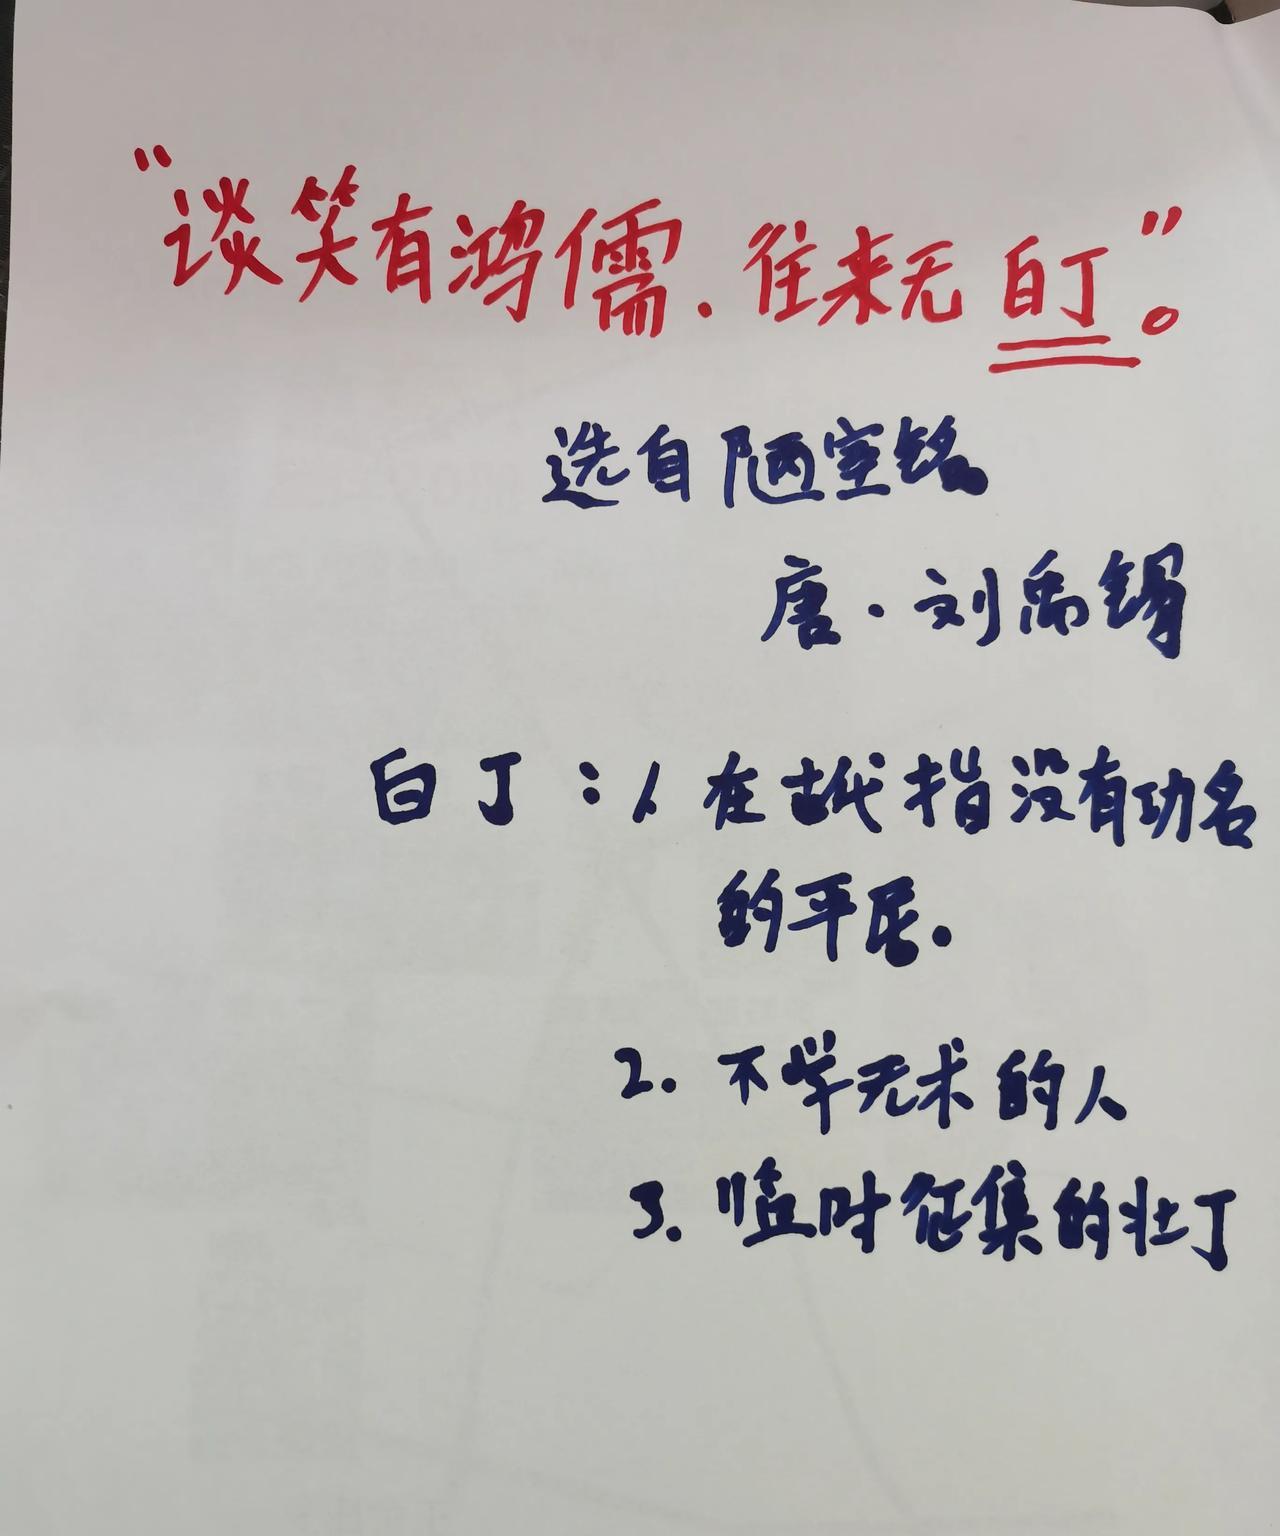 “谈笑有鸿儒.往来无白丁”。
选自陋室铭
唐·刘禹锡
白丁:1在古代指没有功名
的平民.
2.不学无术的人
3.临时征集的壮丁